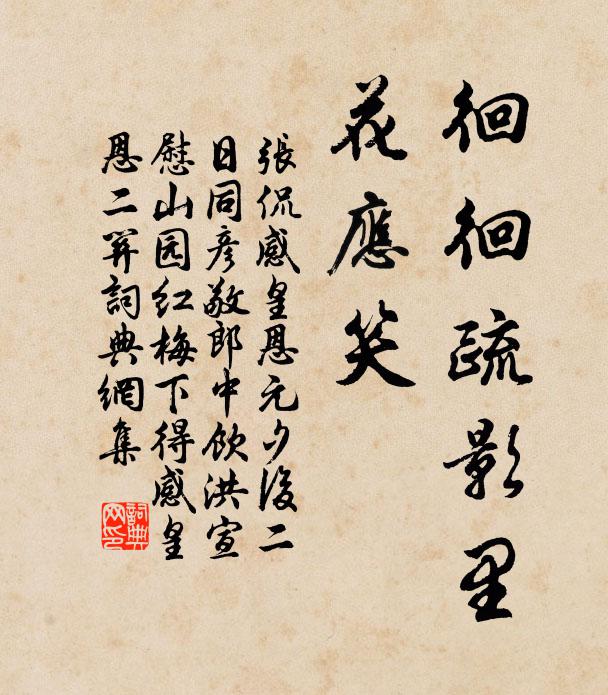 徊徊疏影里
花應笑
張侃感皇恩元夕後二
日同彥敬郎中飲洪宣
慰山园红梅下得感皇
恩二詞典網集
詞典
网印